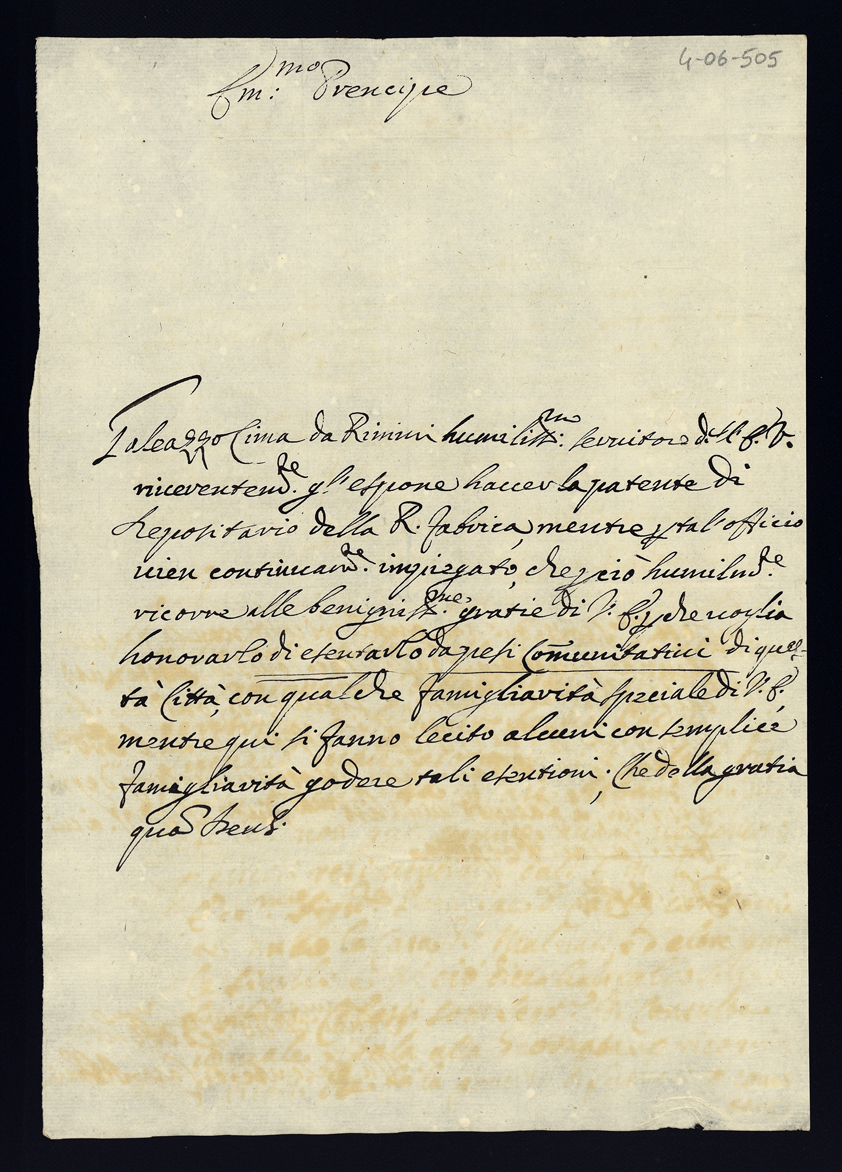 4-06-505
Em:mo Prencipe
Galeazzo Cima da Rimini humiliss:mo servitore di V. E.
riverentem.te gl' espone haver la patente di
Depositario della R. Fabrica, mentre p tal' officio
vien continuam.te impiegato, che p ciò humilm.te
ricorre alle benigniss.me gratie di V. E. p che voglia
honorarlo di esentarlo da pesi Comunitativi di ques-
ta Città, con qualche famigliarità speciale di V. E.
mentre qui si fanno lecito alcuni con semplice
famigliarità godere tali esentioni; Che della gratia
qua Deus.